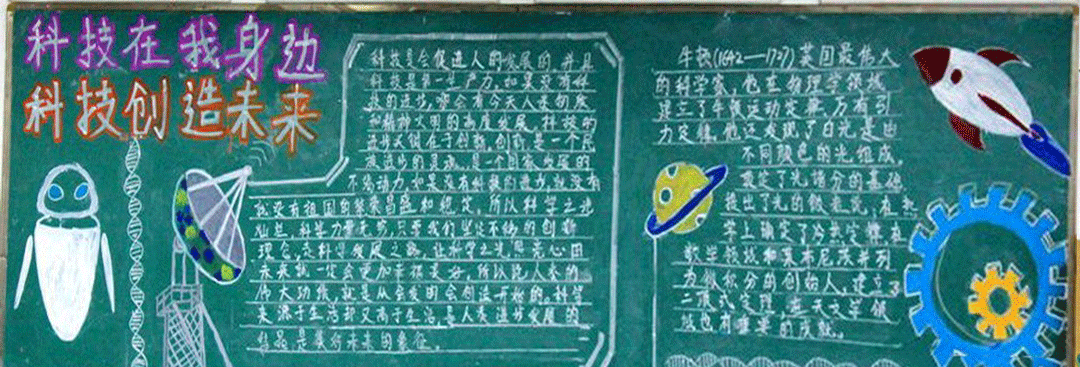 科技在我身边
科技创造未来
科技是会促进人的发展的,并且
科技是第一生产力,如果没有科
技的进步,哪会有今天人类物质
和精神文明的高度发展,科技的
进步关键在于创新,创新是一个民
族进步的灵魂,是一个国家发展的
不竭动力,如果没有科技的进步,就没有
就没有祖国的繁荣昌盛和稳定,所以科学之光
灿烂,科技力量无穷,只要我们坚定不移的创新
理念,走科学发展之路,让科学之光
未来就一定会更加幸福美好,所以说人类的
伟大功绩,就是从会发明会创造开始的,科学
来源于生活却又高于生活,是人类进步发展的
结晶是美好未来的象征。
牛顿(1642—1727)英国最伟大
的科学家,他在物理学领域
建立了牛顿运动定律,万有引
力定律,他还发现了白光是由
不同颜色的光组成,
奠定了光谱分的基础
提出了光的微粒说,在热
学上确定了冷却定律在
数学领域和莱布尼茨并列
为微积分的创始人,建立了
二项式定理,在天文学领
域也有重要的成就。